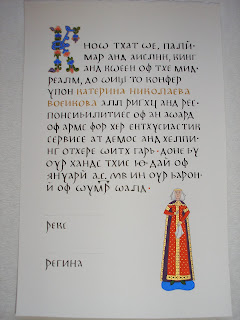 КНОѠ ТХАТ ѠЕ, ПАЛЙ-
МАР АНД АИСЛИН, КИНГ
АНД КѠЕЕН ОФ ТХЕ МИД-
РЕАЛМ, ДО ѠИШ ТО КОНФЕР
УПОН КАТЕРИНА НИКОЛАЕВА
ВОЕИКОВА АЛЛ РИГХЦ АНД РЕС-
ПОНСИБИЛИТИЕС ОФ АН АѠАРД
ОФ АРМС ФОР ХЕР ЕНТХУСИАСТИК
СЕРВИСЕ АТ ДЕМОС АНД ХЕЛПИ-
НГ ОТХЕРС ѠИТХ ГАРБ. ДОНЕ БЙ
ОУР ХАНДС ТХИС ДАЙ ОФ
ЯНУАРЙ А.С. ИН ОУР БАРОН-
Й ОФ
РЕКС
РЕГИНА